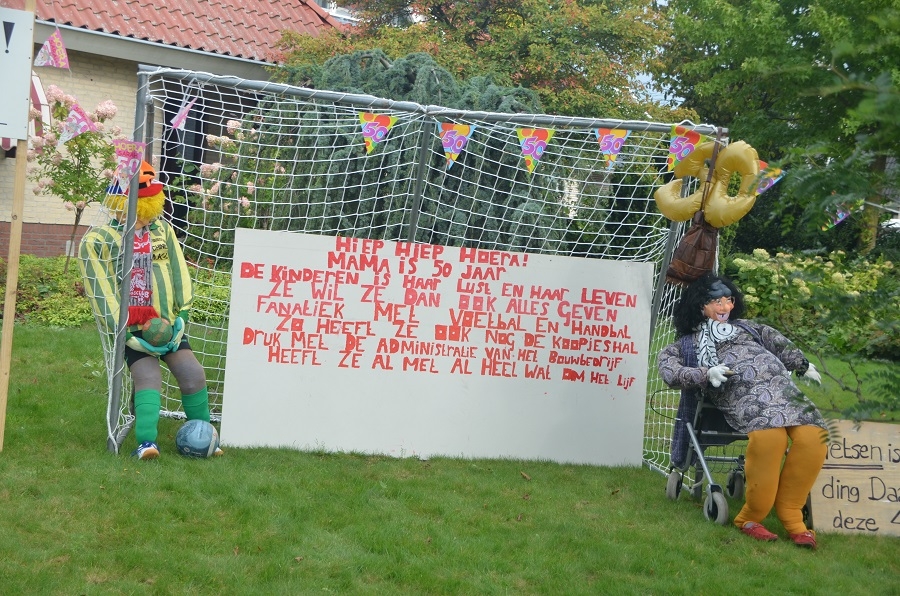 !
HOERA
50
50
50
50
50
HIEP HIEP HOERA!
MAMA IS 50 JAAR
DE KINDEREN IS HAAR LUST EN HAAR LEVEN
ZE WIL ZE DAN OOK ALLES GEVEN
FANATIEK MET VOETBAL EN HANDBAL
ZO HEEFT ZE OOK NOG DE KOOPJESHAL
DRUK MET DE ADMINISTRATIE VAN HET BOUWBEDRIJF
HEEFT ZE AL MET AL HEEL WAT OM HET LIJF
ietsen is
ding Da
deze